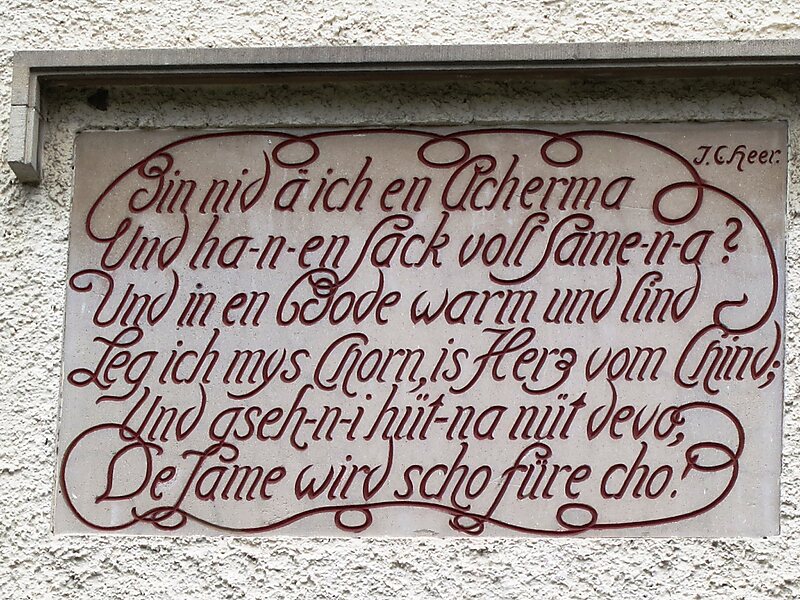 J. C. Heer.
Bin nid ä ich en Acherma
Und ha-n-en Sack voll Same-n-a?
Und in en Bode warm und lind
Leg ich mys Chorn, is Herz vom Chind;
Und gseh-n-i hüt-na nüt devo,
De Same wird scho füre cho!